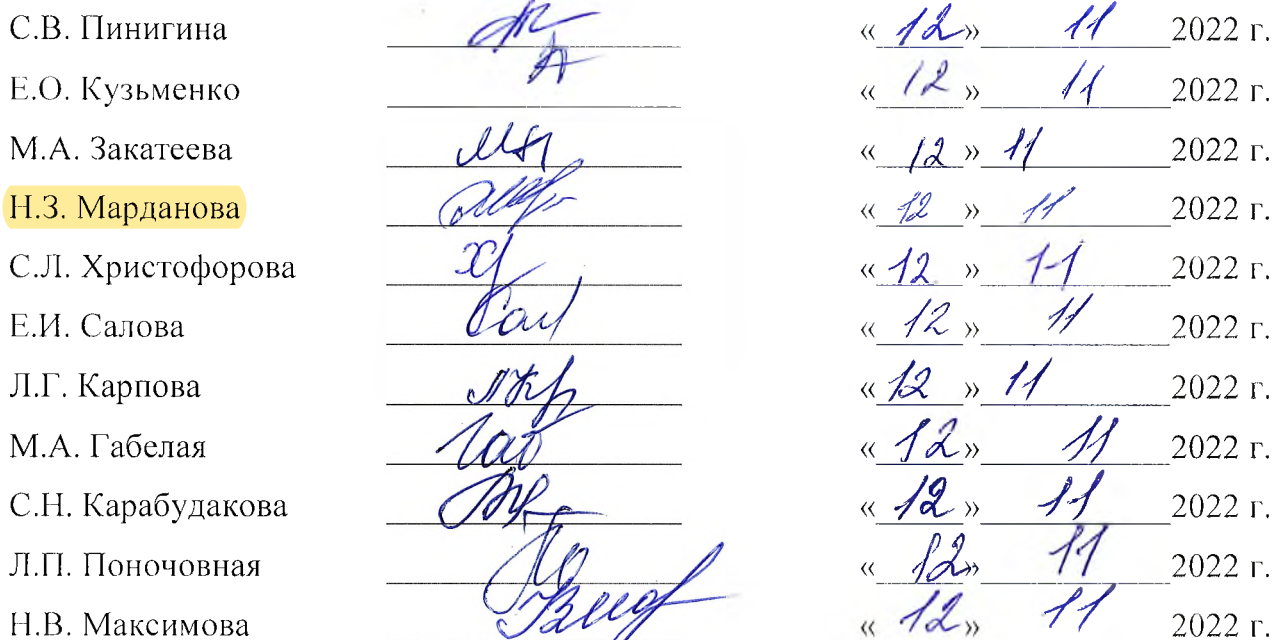 С.В. Пинигина «12» 11 2022 г.
Е.О. Кузьменко «12» 11 2022 г.
М.А. Закатеева «12» 11 2022 г.
Н.З. Марданова «12» 11 2022 г.
С.Л. Христофорова «12» 11 2022 г.
Е.И. Салова Сал «12» 11 2022 г.
Л.Г. Карпова «12» 11 2022 г.
М.А. Габелая Габ «12» 11 2022 г.
С.Н. Карабудакова «12» 11 2022 г.
Л.П. Поночовная «12» 11 2022 г.
Н.В. Максимова «12» 11 2022 г.